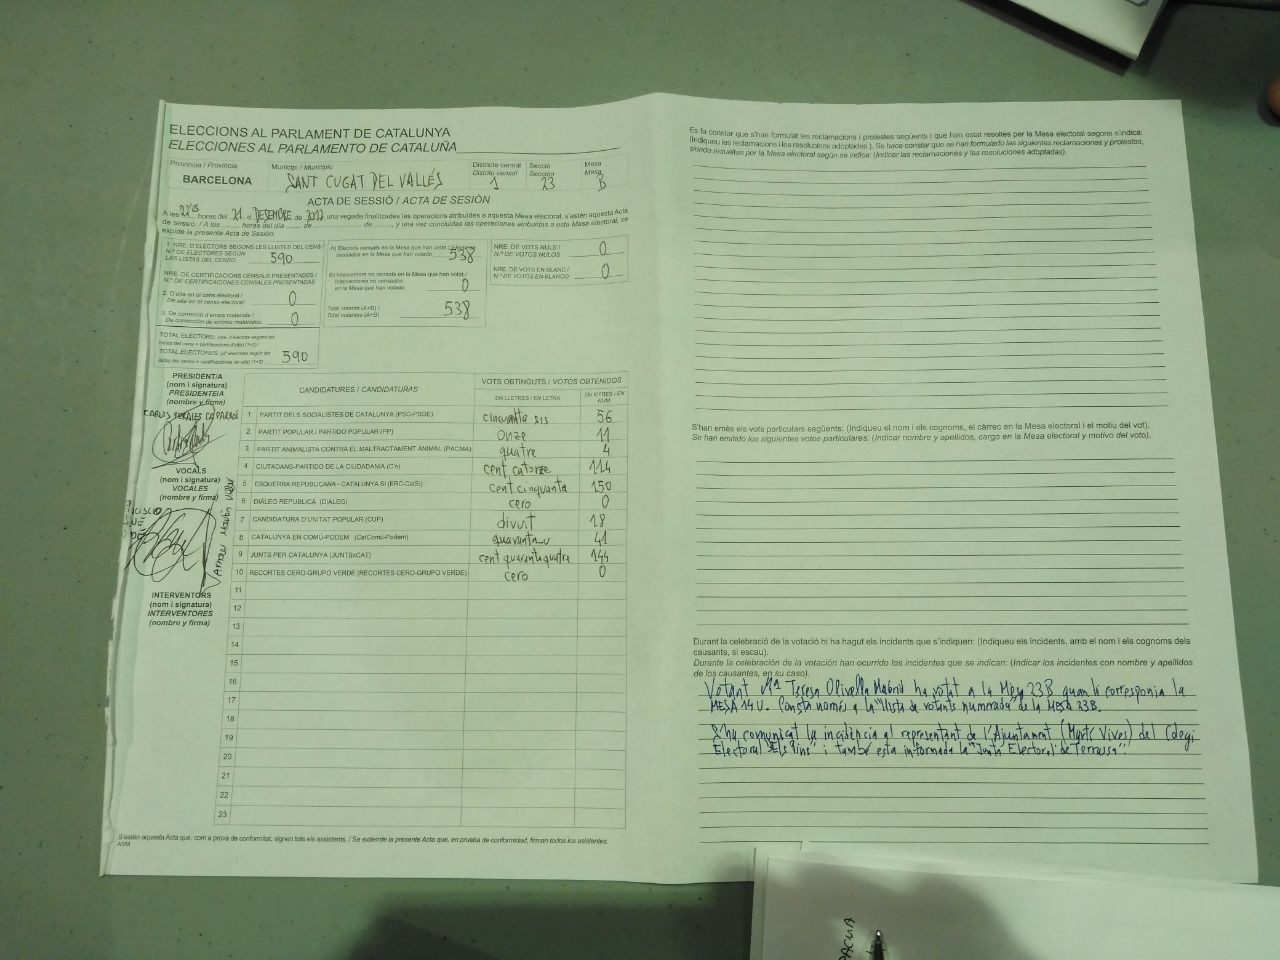 ELECCIONS AL PARLAMENT DE CATALUNYA
ELECCIONES AL PARLAMENTO DE CATALUÑA
Província / Provincia
BARCELONA
Municipi / Municipio
SANT CUGAT DEL VALLÉS
Districte censal
Distrito censal
1
Secció
Sección
23
Mesa
Mesa
B
ACTA DE SESSIÓ / ACTA DE SESIÓN
A les 22'05 hores del 21 d DESEMBRE de 2017 una vegada finalitzades les operacions atribuïdes a aquesta Mesa electoral, s'estén aquesta Acta
de sessió. / A las ........ horas del día ........ de ................ de ........, y una vez concluidas las operaciones atribuidas a esta Mesa electoral, se
expide la presente Acta de Sesión:
1. NRE. D'ELECTORS SEGONS LES LLISTES DEL CENS /
N.º DE ELECTORES SEGÚN
LAS LISTAS DEL CENSO
590
NRE. DE CERTIFICACIONS CENSALS PRESENTADES /
N.º DE CERTIFICACIONES CENSALES PRESENTADAS
2. D'alta en el cens electoral /
De alta en el censo electoral:
0
3. De correcció d'errors materials /
De corrección de errores materiales:
0
TOTAL ELECTORS: (nre. d'electors segons les
llistes del cens + certificacions d'alta) (1+2) /
TOTAL ELECTORES: (nº electores según las
listas del censo + certificaciones de alta) (1+2)
590
A) Electors censats en la Mesa que han votat / Electores
censados en la Mesa que han votado
538
B) Interventors no censats en la Mesa que han votat /
Interventores no censados
en la Mesa que han votado
0
Total votants (A+B) /
Total votantes (A+B)
538
NRE. DE VOTS NULS /
N.º DE VOTOS NULOS
0
NRE. DE VOTS EN BLANC /
N.º DE VOTOS EN BLANCO
0
PRESIDENT/A
(nom i signatura)
PRESIDENTE/A
(nombre y firma)
VOCALS
(nom i signatura)
VOCALES
(nombre y firma)
INTERVENTORS
(nom i signatura)
INTERVENTORES
(nombre y firma)
CANDIDATURES / CANDIDATURAS
VOTS OBTINGUTS / VOTOS OBTENIDOS
EN LLETRES / EN LETRA
EN XIFRES / EN NÚM.
1 PARTIT DELS SOCIALISTES DE CATALUNYA (PSC-PSOE) cincuanta sis 56
2 PARTIT POPULAR / PARTIDO POPULAR (PP) onze 11
3 PARTIT ANIMALISTA CONTRA EL MALTRACTAMENT ANIMAL (PACMA) quatre 4
4 CIUTADANS-PARTIDO DE LA CIUDADANÍA (C's) cent catorze 114
5 ESQUERRA REPUBLICANA - CATALUNYA SÍ (ERC-CatSí) cent cinquanta 150
6 DIÀLEG REPUBLICÀ (DIÀLEG) cero 0
7 CANDIDATURA D'UNITAT POPULAR (CUP) divuit 18
8 CATALUNYA EN COMÚ-PODEM (CatComú-Podem) quaranta-u 41
9 JUNTS PER CATALUNYA (JUNTSxCAT) cent quaranta quatre 144
10 RECORTES CERO-GRUPO VERDE (RECORTES CERO-GRUPO VERDE) cero 0
11
12
13
14
15
16
17
18
19
20
21
22
23
S'estén aquesta Acta que, com a prova de conformitat, signen tots els assistents. / Se extiende la presente Acta que, en prueba de conformidad, firman todos los asistentes.
ASM
Es fa constar que s'han formulat les reclamacions i protestes següents i que han estat resoltes per la Mesa electoral segons s'indica:
(Indiqueu les reclamacions i les resolucions adoptades). Se hace constar que se han formulado las siguientes reclamaciones y protestas,
siendo resueltas por la Mesa electoral según se indica: (Indicar las reclamaciones y las resoluciones adoptadas).
S'han emès els vots particulars següents: (Indiqueu el nom i els cognoms, el càrrec en la Mesa electoral i el motiu del vot).
Se han emitido los siguientes votos particulares: (Indicar nombre y apellidos, cargo en la Mesa electoral y motivo del voto).
Durant la celebració de la votació hi ha hagut els incidents que s'indiquen: (Indiqueu els incidents, amb el nom i els cognoms dels
causants, si escau).
Durante la celebración de la votación han ocurrido los incidentes que se indican: (Indicar los incidentes con nombre y apellidos
de los causantes, en su caso).
Votant Mª Teresa Olivella Madrid ha votat a la Mesa 23B quan li corresponia la
MESA 14U. Consta només a la "llista de votants numerada" de la MESA 23B.
S'ha comunicat la incidència al representant de l'Ajuntament (Martí Vives) del Colegi
Electoral "Els Pins" i també esta informada la "Junta Electoral de Terrassa".
PACMA